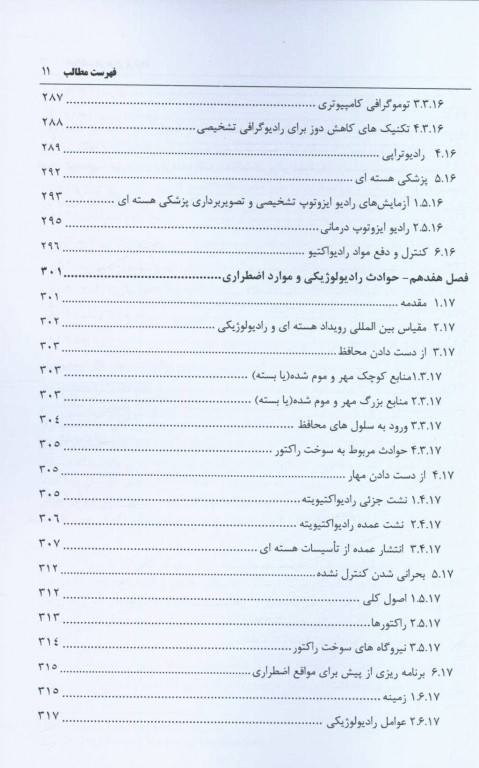 فهرست مطالب ۱۱
۳.۳.۱۶ توموگرافی کامپیوتری ........ ۲۸۷
۴.۳.۱۶ تکنیک های کاهش دوز برای رادیوگرافی تشخیصی ........ ۲۸۸
۴.۱۶ رادیوتراپی ........ ۲۸۹
۵.۱۶ پزشکی هسته ای ........ ۲۹۲
۱.۵.۱۶ آزمایش‌های رادیو ایزوتوپ تشخیصی و تصویربرداری پزشکی هسته ای ........ ۲۹۳
۲.۵.۱۶ رادیو ایزوتوپ درمانی ........ ۲۹۵
۶.۱۶ کنترل و دفع مواد رادیواکتیو ........ ۲۹۶
فصل هفدهم- حوادث رادیولوژیکی و موارد اضطراری ........ ۳۰۱
۱.۱۷ مقدمه ........ ۳۰۱
۲.۱۷ مقیاس بین المللی رویداد هسته ای و رادیولوژیکی ........ ۳۰۲
۳.۱۷ از دست دادن محافظ ........ ۳۰۳
۱.۳.۱۷منابع کوچک مهر و موم شده(یا بسته) ........ ۳۰۳
۲.۳.۱۷ منابع بزرگ مهر و موم شده(یا بسته) ........ ۳۰۳
۳.۳.۱۷ ورود به سلول های محافظ ........ ۳۰۴
۴.۳.۱۷ حوادث مربوط به سوخت راکتور ........ ۳۰۵
۴.۱۷ از دست دادن مهار ........ ۳۰۵
۱.۴.۱۷ نشت جزئی رادیواکتیویته ........ ۳۰۵
۲.۴.۱۷ نشت عمده رادیواکتیویته ........ ۳۰۶
۳.۴.۱۷ انتشار عمده از تأسیسات هسته ای ........ ۳۰۷
۵.۱۷ بحرانی شدن کنترل نشده ........ ۳۱۲
۱.۵.۱۷ اصول کلی ........ ۳۱۲
۲.۵.۱۷ راکتورها ........ ۳۱۳
۳.۵.۱۷ نیروگاه های سوخت راکتور ........ ۳۱۴
۶.۱۷ برنامه ریزی از پیش برای مواقع اضطراری ........ ۳۱۵
۱.۶.۱۷ زمینه ........ ۳۱۵
۲.۶.۱۷ عوامل رادیولوژیکی ........ ۳۱۷